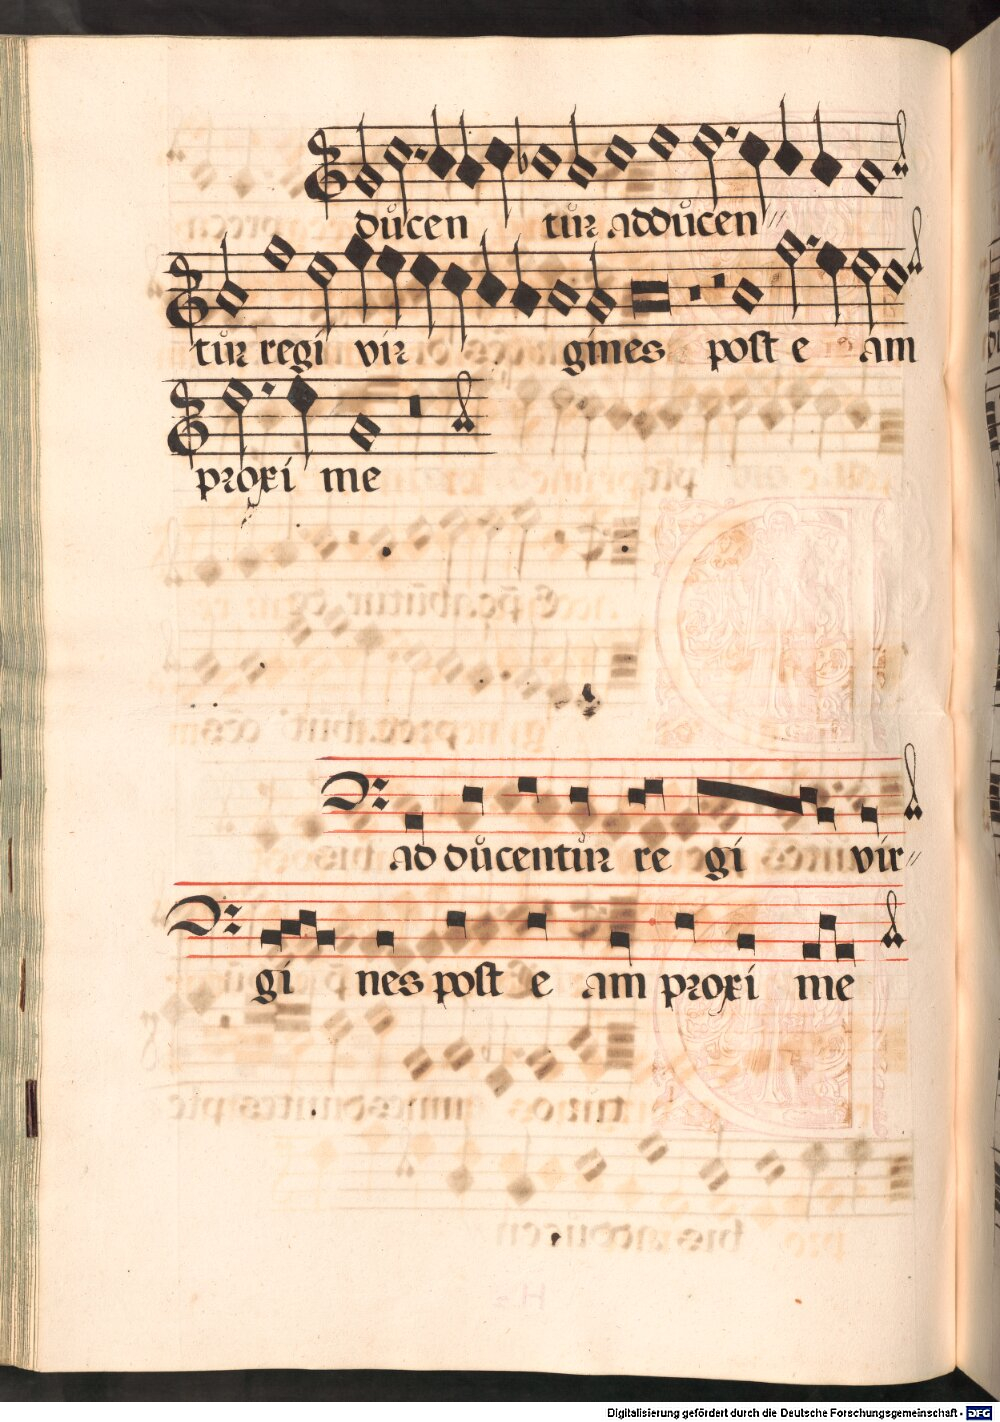 důcen tůr addůcen
tůr regi vir gines post e am
proxi me
ad důcentůr re gi vir
gi nes post e am proxi me
Digitalisierung gefördert durch die Deutsche Forschungsgemeinschaft - DFG